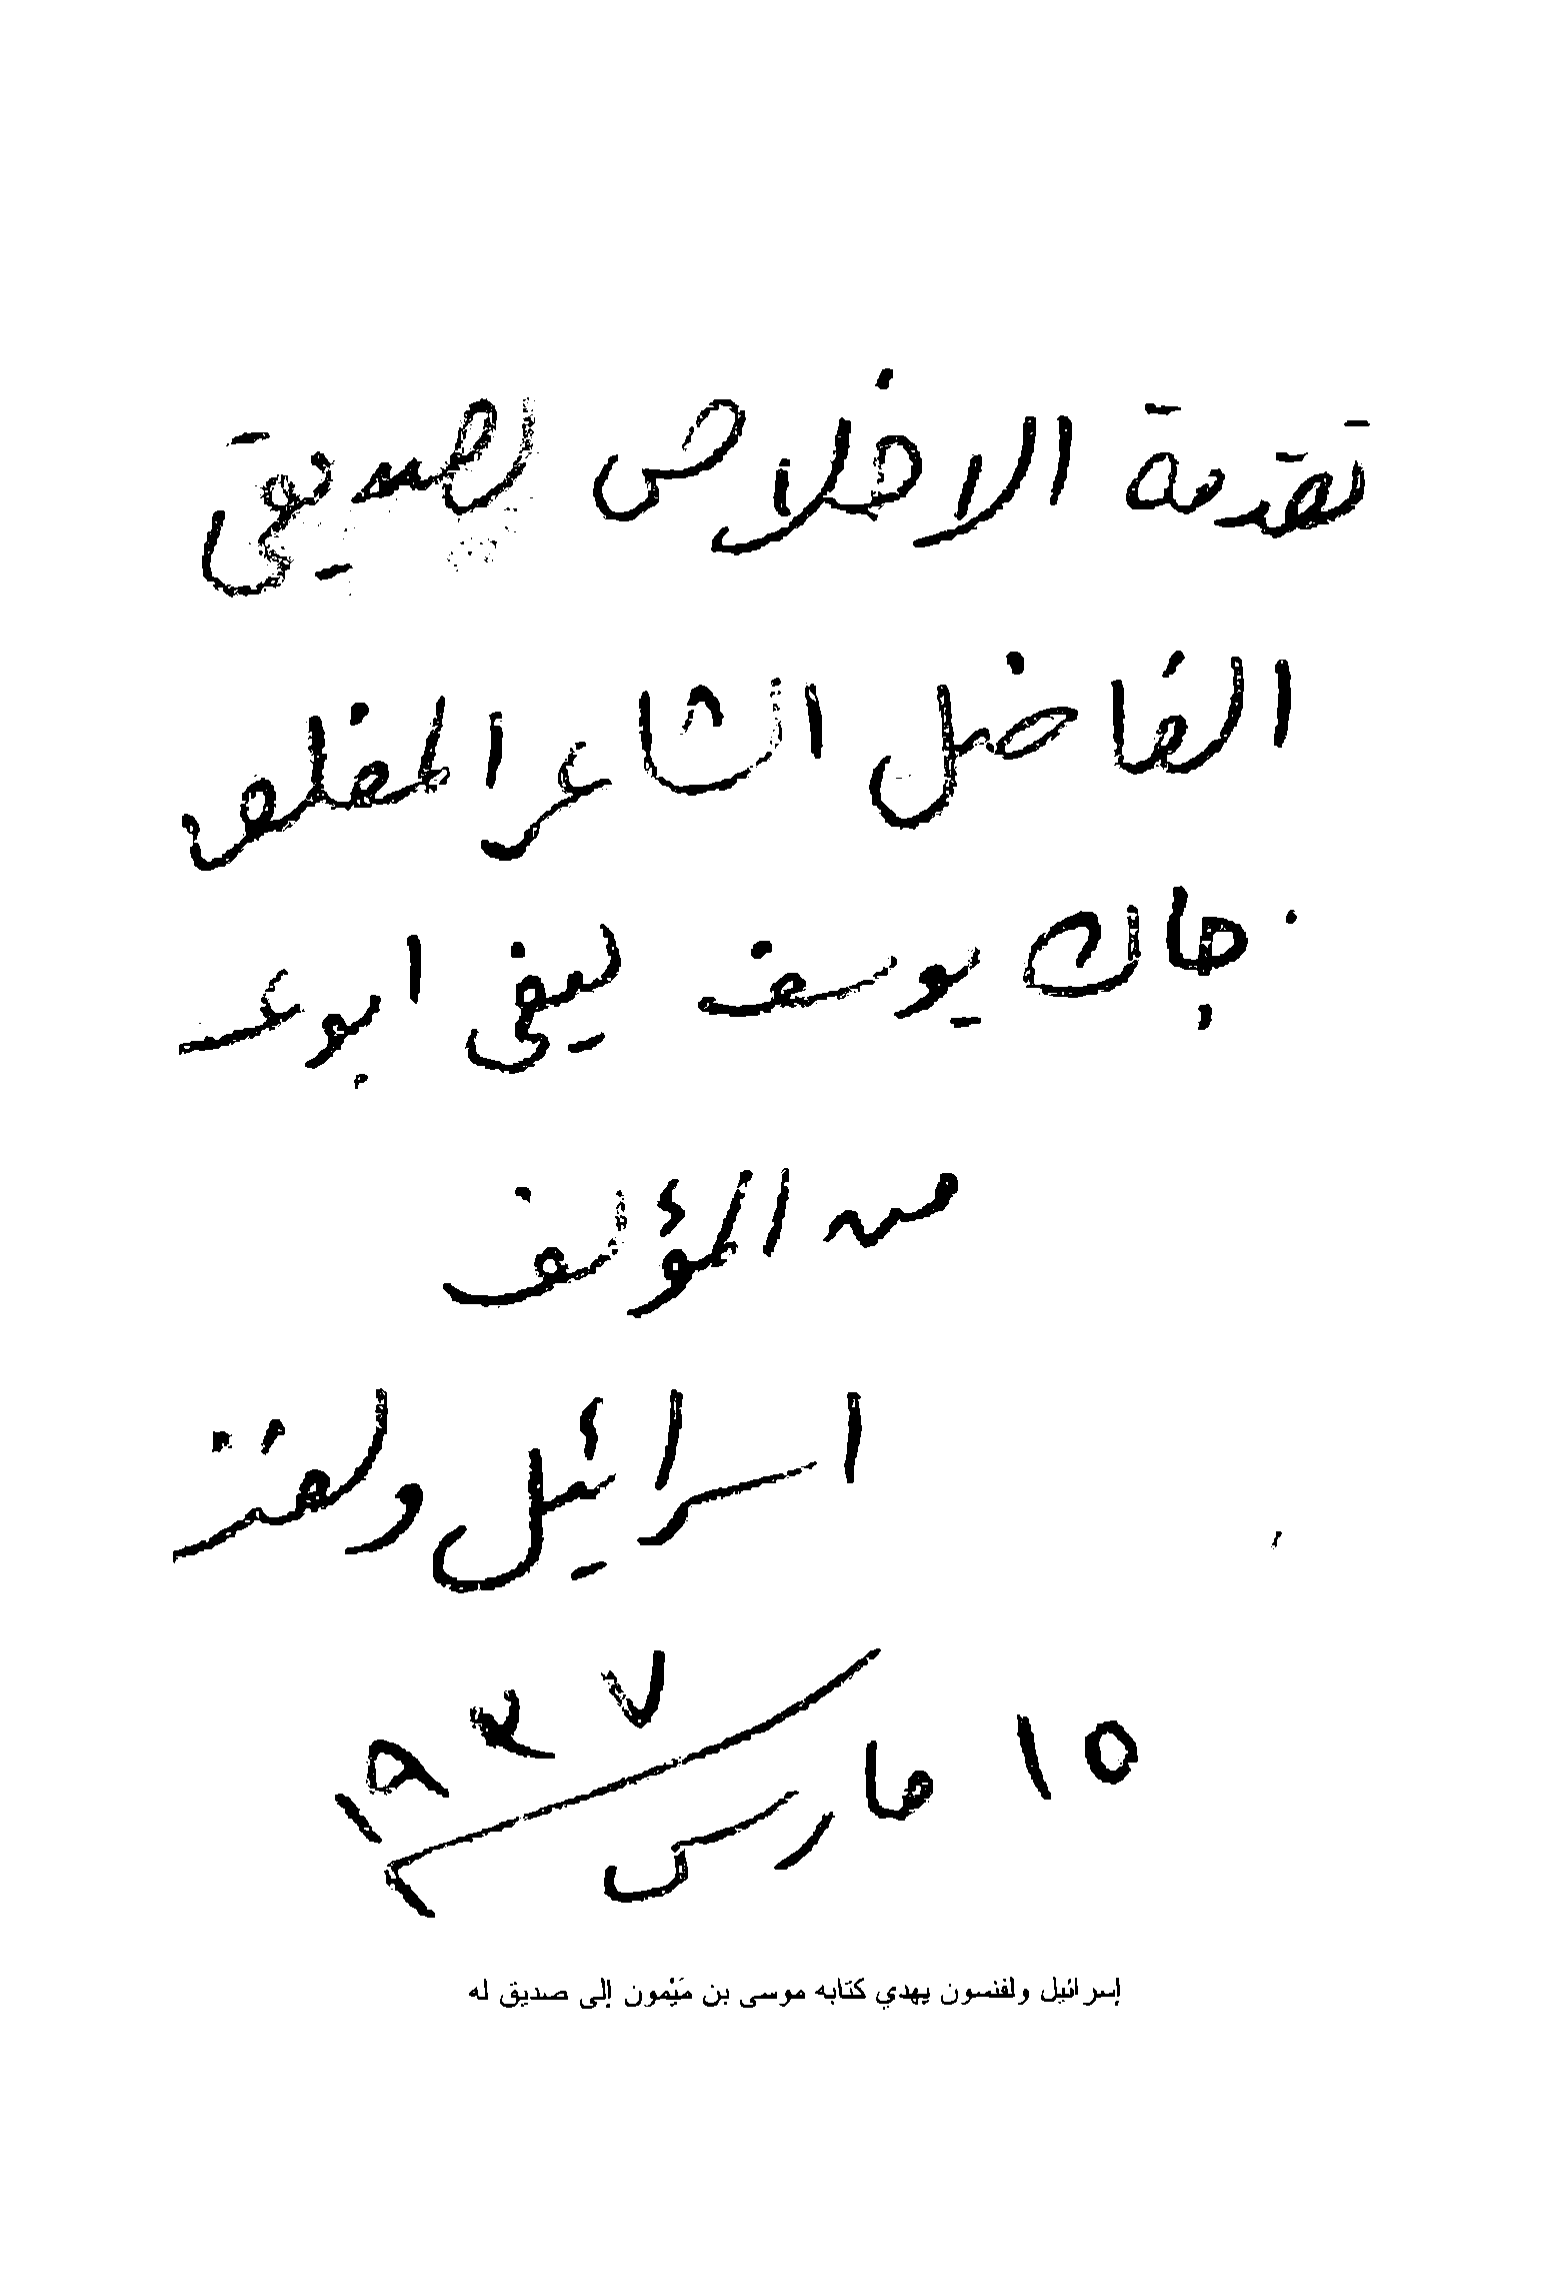 تقدمة الاخلاص لصديقى
الفاضل الشاعر المفلق
جاك يوسف ليفى ابو عـ
من المؤلف
اسرائيل ولفنـ
١٥ مارس ١٩٣٧
إسرائيل ولفنسون يهدي كتابه موسى بن مَيْمون إلى صديق له